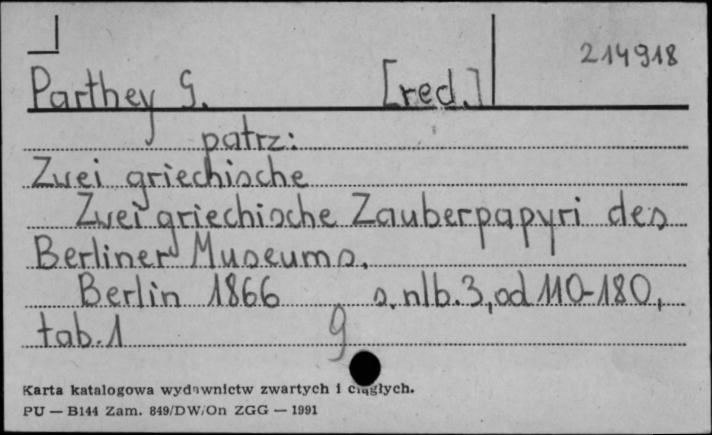 214918
Parthey G. [red.]
patrz:
Zwei griechische
Zwei griechische Zauberpapyri des
Berliner Museums.
Berlin 1866 s. nlb. 3, od 110-180,
tab. 1 9
Karta katalogowa wydawnictw zwartych i ciągłych.
PU — B144 Zam. 849/DW/On ZGG — 1991